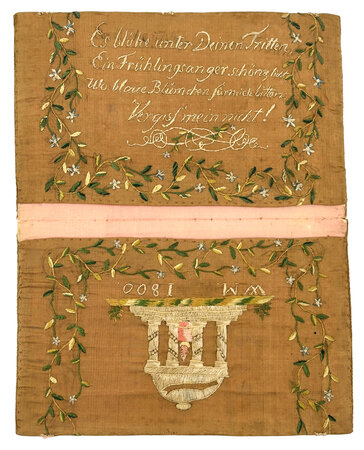 Es blühe unter Deinen Tritten,
Ein Frühlingsanger, schöng
Wo blaue Blümchen für mich bitten:
Vergiß mein nicht!
WM 1800